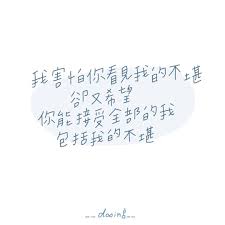 我害怕你看見我的不堪
卻又希望
你能接受全部的我
包括我的不堪